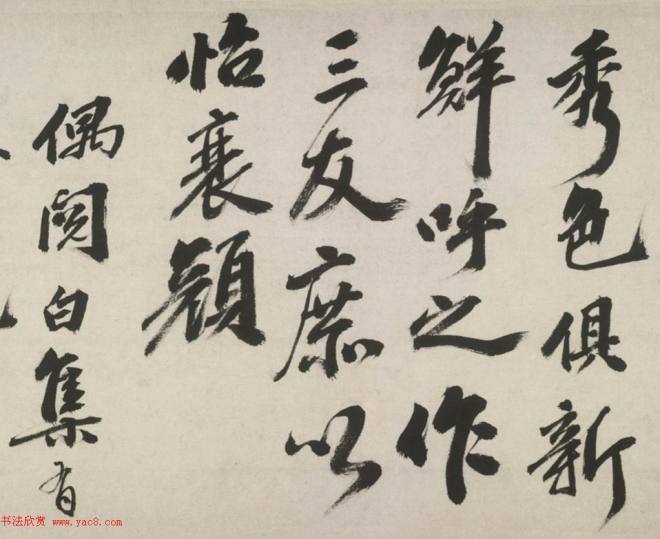 秀色俱新
鮮呼之作
三友庶以
怡衰顏
偶閱白集有
书法欣赏 www.yac8.com